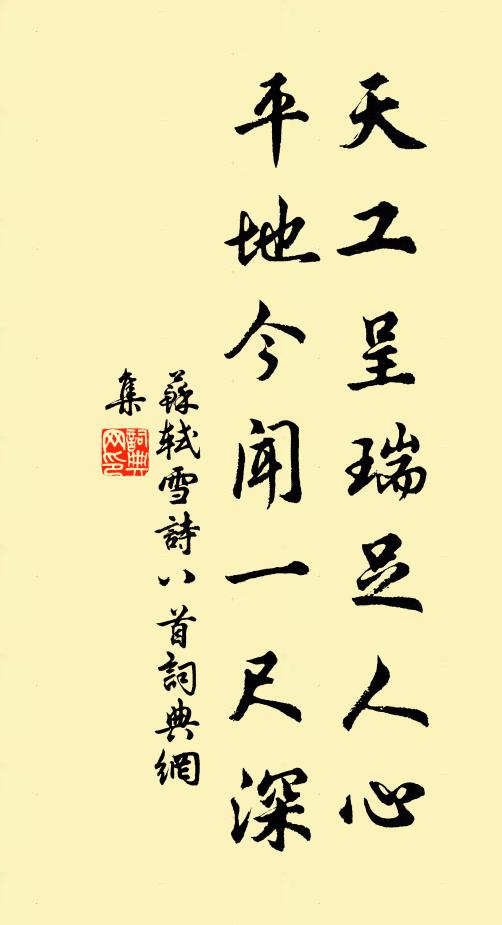 天工呈瑞足人心
平地今闻一尺深
蘇軾雪詩八首詞典網
集
詞典
网印